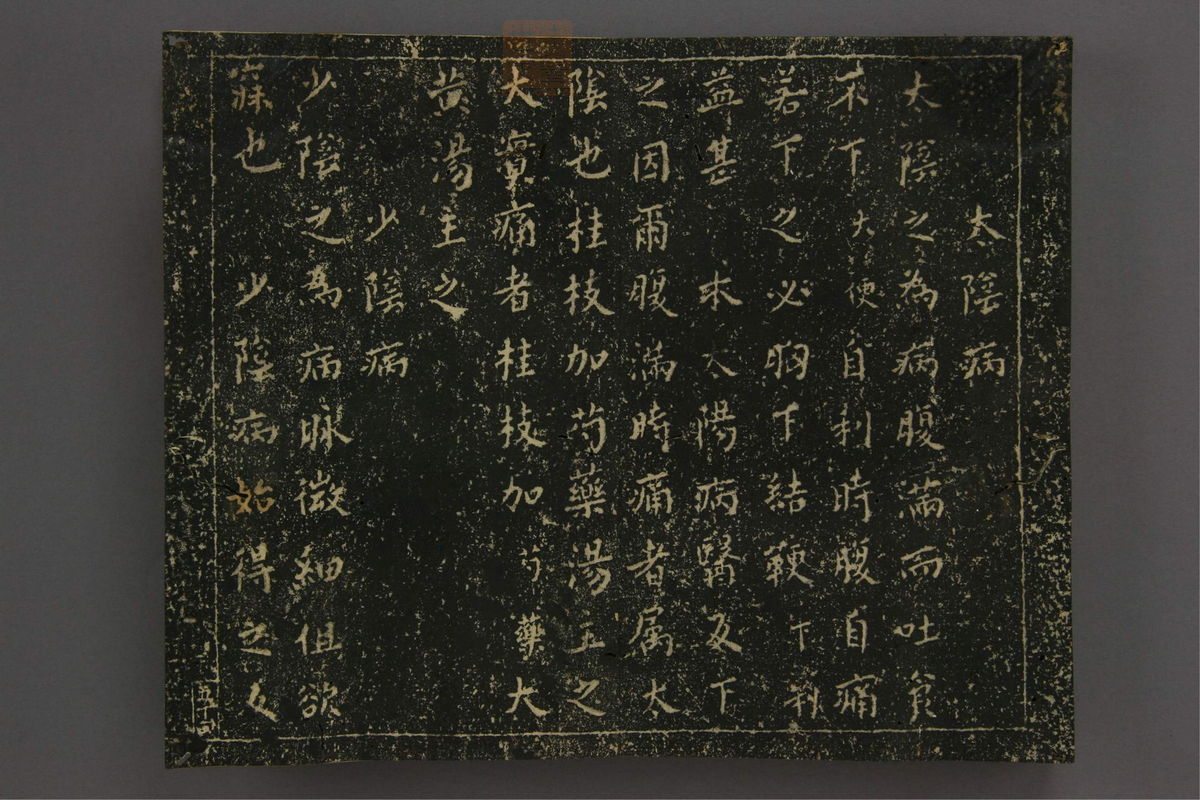 太陰病
太陰之為病腹滿而吐食
不下大便自利時腹自痛
若下之必胸下結鞕下利
益甚 本太陽病醫反下
之因爾腹滿時痛者属太
陰也桂枝加芍藥湯主之
大實痛者桂枝加芍藥大
黄湯主之
少陰病
少陰之為病脉微細但欲
寐也 少陰病始得之反